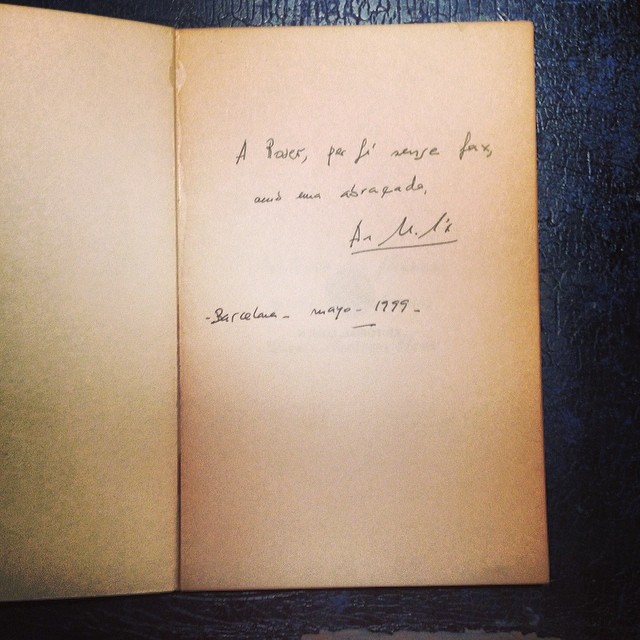 A Roser, per fi sense fax,
amb una abraçada,
-Barcelona - mayo - 1999 -